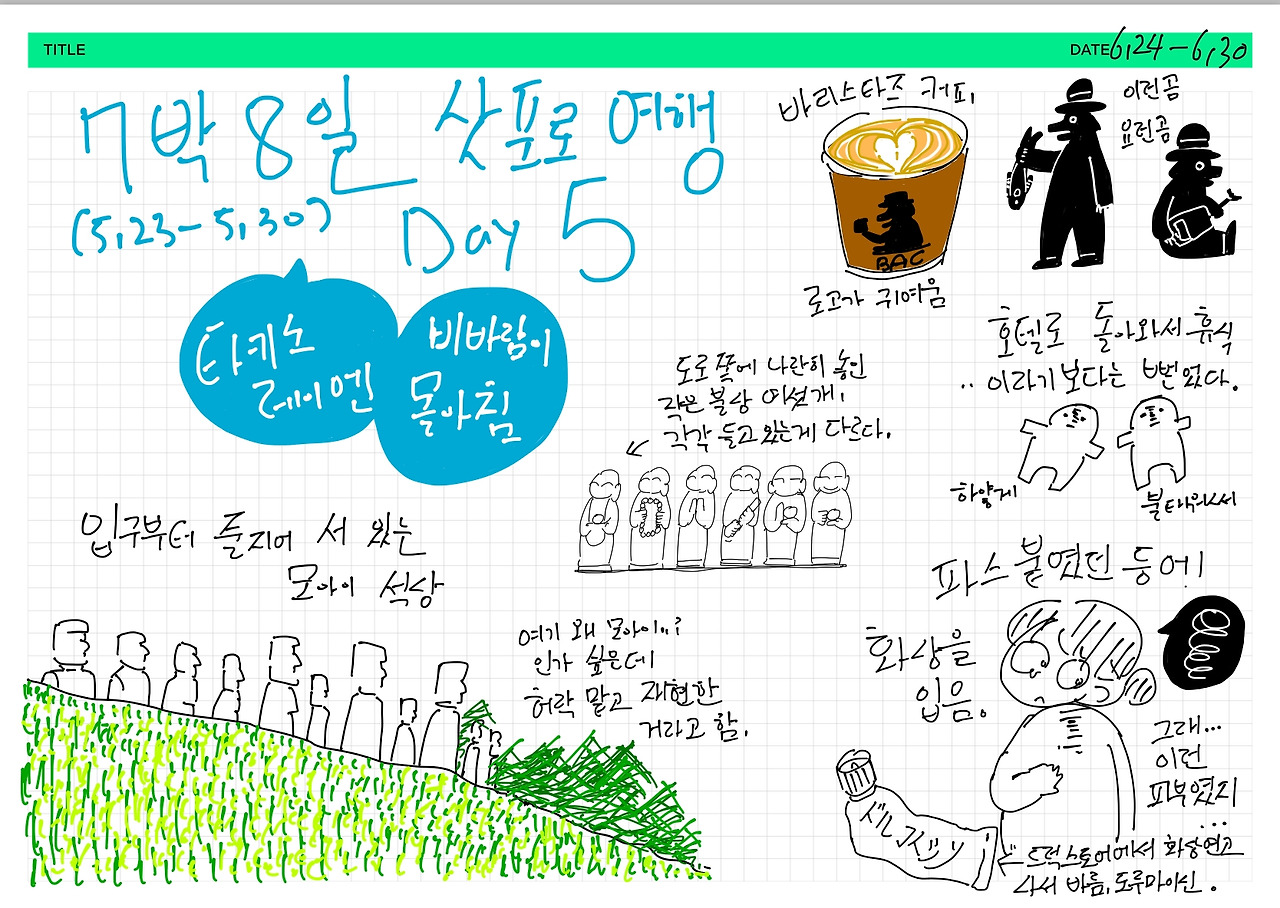 TITLE
DATE 6.24-6.30
7박 8일 삿포로 여행
(5.23-5.30) Day 5
타키노
레이엔
비바람이
몰아침
바리스타즈 커피.
BAC
로고가 귀여움
이런곰
요런곰
도로 쪽에 나란히 놓인
작은 불상 여섯개.
각각 들고 있는게 다르다.
호텔로 돌아와서 휴식
..이라기 보다는 뻗었다.
하얗게
불태워서
입구부터 줄지어 서 있는
모아이 석상
여기 왜 모아이..?
인가 싶은데
허락 맡고 재현한
거라고 함.
파스 붙였던 등에!
화상을
입음.
그래...
이런
피부였지
...
드럭스토어에서 화상연고
사서 바름. 도루마이신.